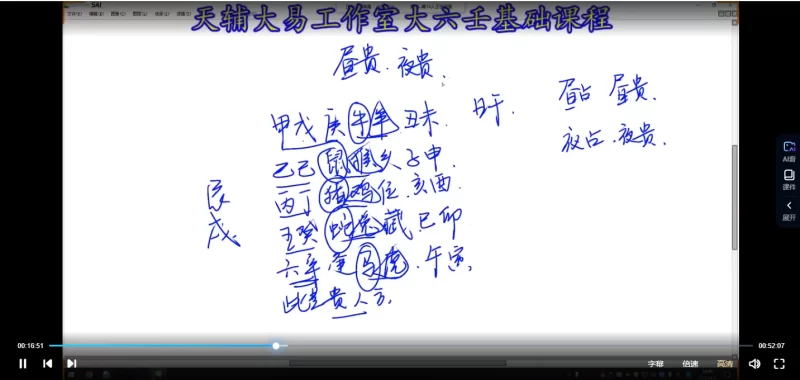 SAI
天辅大易工作室大六壬基础课程
昼贵.夜贵.
甲戊庚牛羊 丑未 日干.
昼占 昼贵.
夜占.夜贵.
乙己鼠猴乡 子申.
丙丁猪鸡位.亥酉.
壬癸蛇兔藏.巳卯
六辛逢马虎.午寅.
此是贵人方.
辰
戌
课件
展开
00:16:51
00:52:07
字幕
倍速
高清